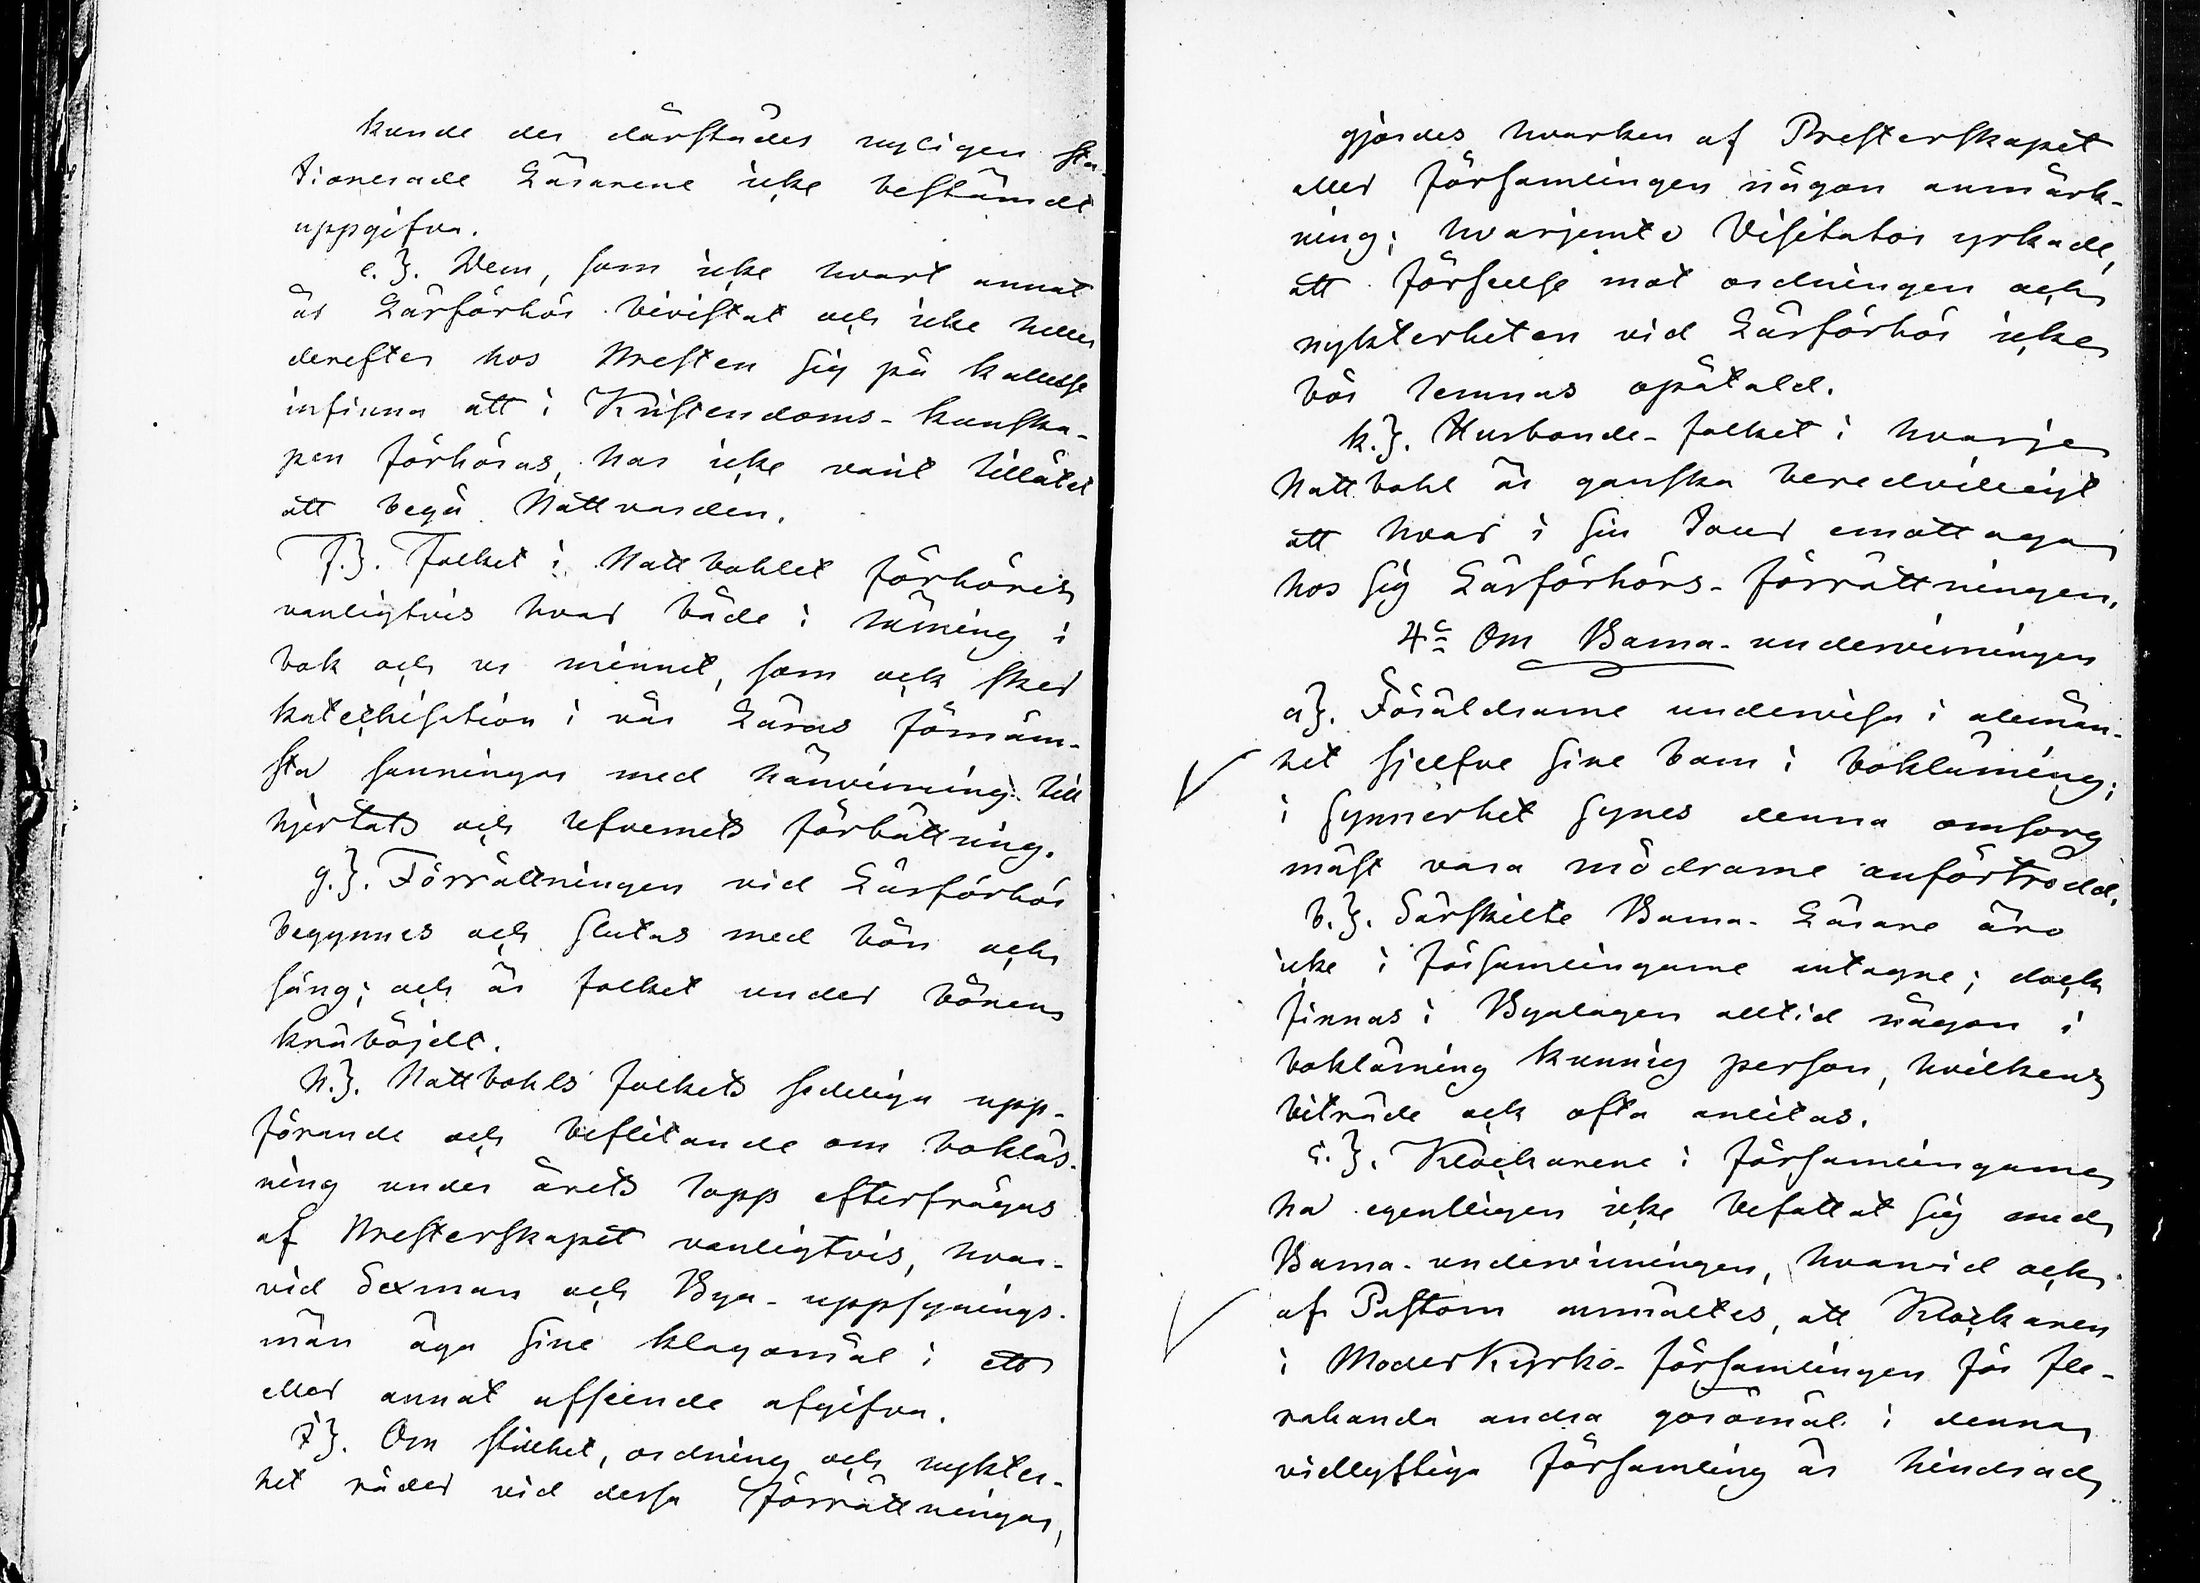 kunde der därstädes nyligen sta-
tionerade Läsarene icke bestämdt
uppgifva.
e.). Dem, som icke hvart annat
år Läsförhör bivistat och icke heller
derefter hos Presten sig på kallelse
infinna att i Kristendoms-kunska-
pen förhöras, har icke varit tillåtet
att begå Nattvarden.
f.). Folket i Nattbohlet förhöres
vanligtvis hvar både i läsning i
bok och ur minnet, som ock sker
katechisation i vår Läras förnäm-
sta sanningar med hänvisning till
hjertats och lefvernets förbättring.
g.). Förrättningen vid Läsförhör
begynnes och slutas med bön och
sång; och är folket under bönen
knäböjdt.
h.). Nattbohls folkets sedeliga upp-
förande och beflitande om bokläs-
ning under årets lopp efterfrågas
af Presterskapet vanligtvis, hvar-
vid Sexman och Bya-uppsynings-
män äga sine klagomål i ett
eller annat afseende afgifva.
i). Om stillhet, ordning och nykter-
het råder vid dessa förrättningar,
gjordes hvarken af Presterskapet
eller församlingen någon anmärk-
ning; hvarjemte Visitator yrkade,
att förseelse mot ordningen och
nykterheten vid Läsförhör icke
bör lemnas opåtald.
k.). Husbonde-folket i hvarje
Nattbohl är ganska beredvilligt
att hvar i sin tour emottaga
hos sig Läsförhörs-förrättningen.
4o Om Barna-undervisningen
a). Föräldrarne undervisa i allmän-
het sjelfve sine barn i bokläsning;
i synnerhet synes denna omsorg
mäst vara mödrarne anförtrodd.
b.). Särskilte Barna-Läsare äro
icke i församlingarne antagne; dock
finnas i Byalagen alltid någon i
bokläsning kunnig person, hvilkens
biträde ock ofta anlitas.
c.). Klockarene i församlingarne
ha egentligen icke befattat sig med
Barna-undervisningen, hvarvid ock
af Pastorn anmältes, att Klockaren
i ModerKyrko-församlingen för fle-
rahanda andra göromål i denna
vidlyftiga församling är hindrad